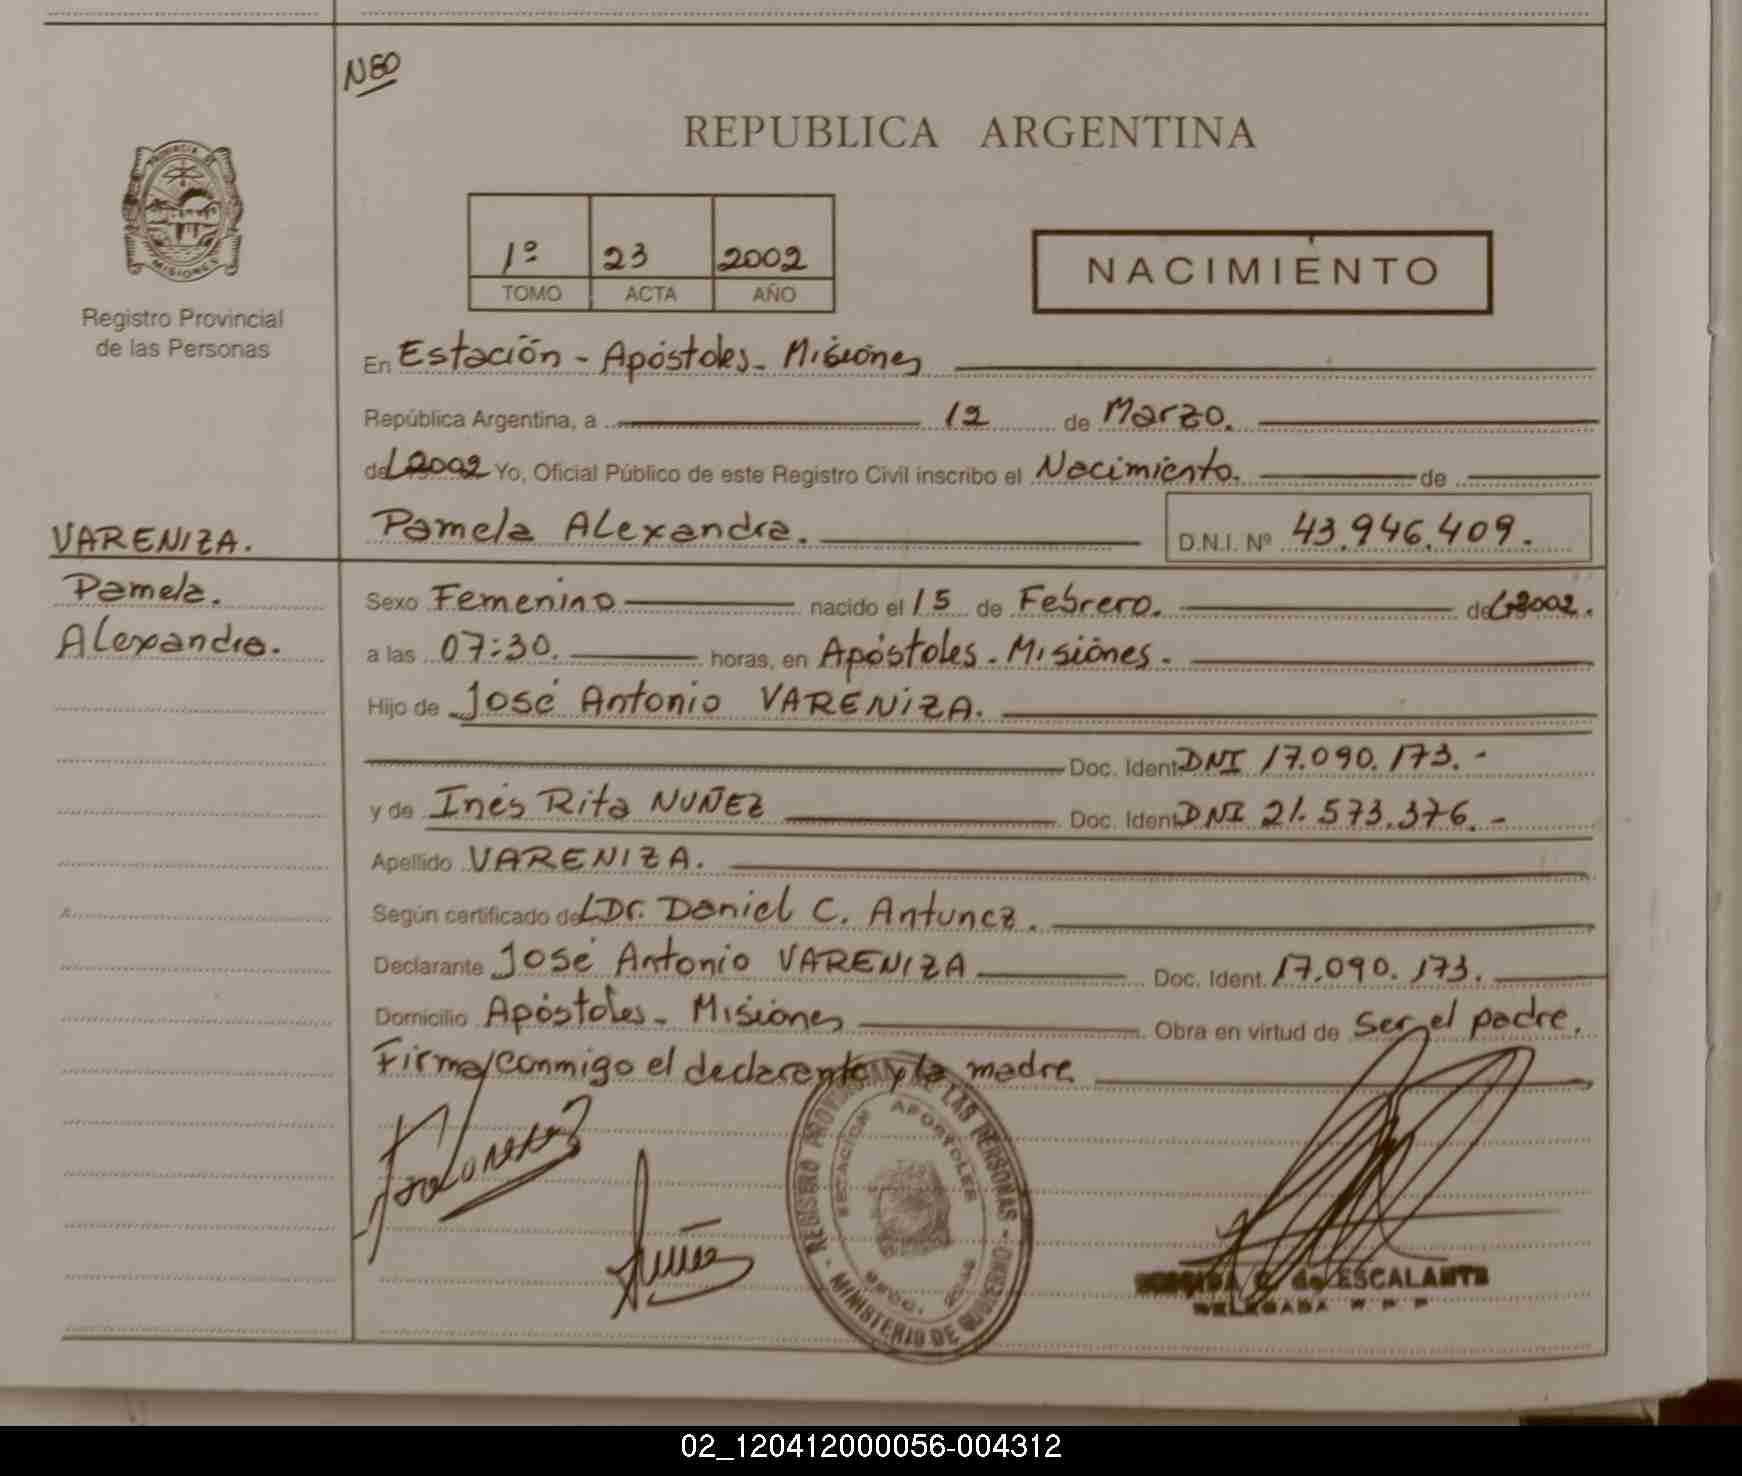 N80
REPUBLICA ARGENTINA
PROVINCIA DE
MISIONES
Registro Provincial
de las Personas
1º 23 2002
TOMO ACTA AÑO
NACIMIENTO
En Estación - Apóstoles - Misiones
República Argentina, a 12 de Marzo.
del 2002 Yo, Oficial Público de este Registro Civil inscribo el Nacimiento. de
Pamela Alexandra. D.N.I. Nº 43.946.409.
VARENIZA.
Pamela.
Alexandra.
Sexo Femenino nacido el 15 de Febrero. del 2002.
a las 07:30. horas, en Apóstoles - Misiones.
Hijo de José Antonio VARENIZA.
Doc. Ident. DNI 17.090.173.-
y de Inés Rita NUÑEZ Doc. Ident. DNI 21.573.376.-
Apellido VARENIZA.
Según certificado del Dr. Daniel C. Antunez.
Declarante José Antonio VARENIZA Doc. Ident. 17.090.173.
Domicilio Apóstoles - Misiones Obra en virtud de Ser el padre.
Firma conmigo el declarante y la madre
REGISTRO PROVINCIAL DE LAS PERSONAS - MINISTERIO DE GOBIERNO -
ESTACION APOSTOLES
de ESCALANTE
DELEGADA
02_120412000056-004312